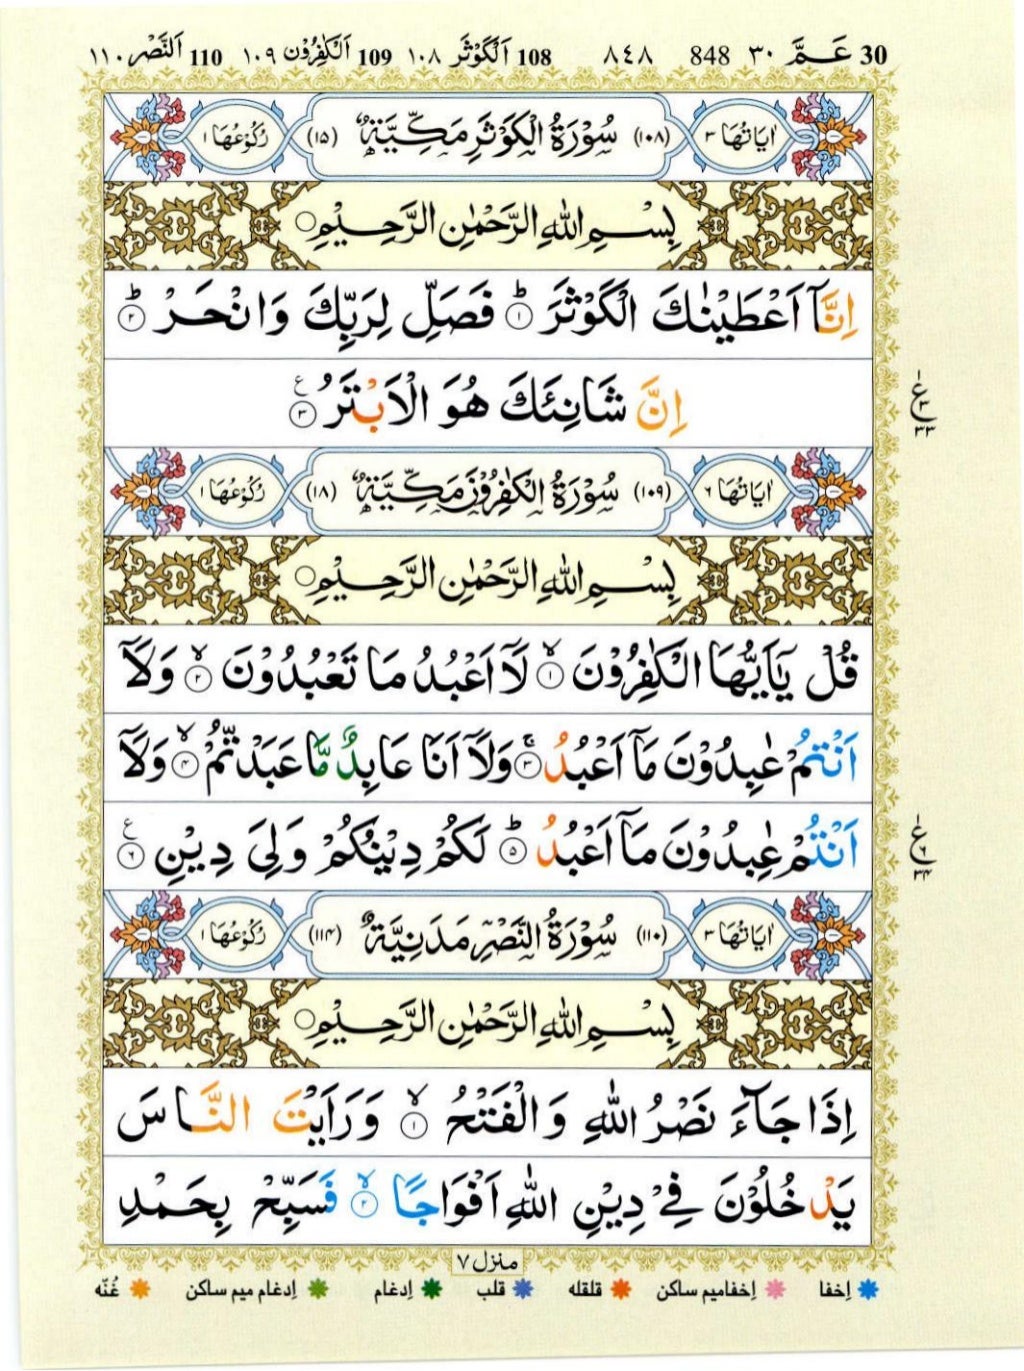 30 عَـمَّ ٣٠ 848 ٨٤٨ 108 اَلْكَوْثَر ١٠٨ 109 اَلْكٰفِرُوْن ١٠٩ 110 اَلنَّصْر ١١٠
اٰيَاتُهَا ٣ (١٠٨) سُوْرَةُ الْكَوْثَرِ مَكِّيَّةٌ (١٥) رُكُوْعُهَا ١
بِسْمِ اللّٰهِ الرَّحْمٰنِ الرَّحِيْمِ
اِنَّاۤ اَعْطَيْنٰكَ الْكَوْثَرَ ؕ١ فَصَلِّ لِرَبِّكَ وَانْحَرْ ؕ٢
اِنَّ شَانِئَكَ هُوَ الْاَبْتَرُ ٣ع
ع ٣ ٣٣
اٰيَاتُهَا ٦ (١٠٩) سُوْرَةُ الْكٰفِرُوْنَ مَكِّيَّةٌ (١٨) رُكُوْعُهَا ١
بِسْمِ اللّٰهِ الرَّحْمٰنِ الرَّحِيْمِ
قُلْ يٰۤاَيُّهَا الْكٰفِرُوْنَ ۙ١ لَاۤ اَعْبُدُ مَا تَعْبُدُوْنَ ۙ٢ وَلَاۤ
اَنْتُمْ عٰبِدُوْنَ مَاۤ اَعْبُدُ ۚ٣ وَلَاۤ اَنَا عَابِدٌ مَّا عَبَدْتُّمْ ۙ٤ وَلَاۤ
اَنْتُمْ عٰبِدُوْنَ مَاۤ اَعْبُدُ ؕ٥ لَكُمْ دِيْنُكُمْ وَلِيَ دِيْنِ ٦ع
ع ٦ ٣٤
اٰيَاتُهَا ٣ (١١٠) سُوْرَةُ النَّصْرِ مَدَنِيَّةٌ (١١٤) رُكُوْعُهَا ١
بِسْمِ اللّٰهِ الرَّحْمٰنِ الرَّحِيْمِ
اِذَا جَآءَ نَصْرُ اللّٰهِ وَالْفَتْحُ ۙ١ وَرَاَيْتَ النَّاسَ
يَدْخُلُوْنَ فِيْ دِيْنِ اللّٰهِ اَفْوَاجًا ۙ٢ فَسَبِّحْ بِحَمْدِ
منزل ٧
اِخفا اِخفامیم ساکن قلقله قلب اِدغام اِدغام میم ساکن غُنّه